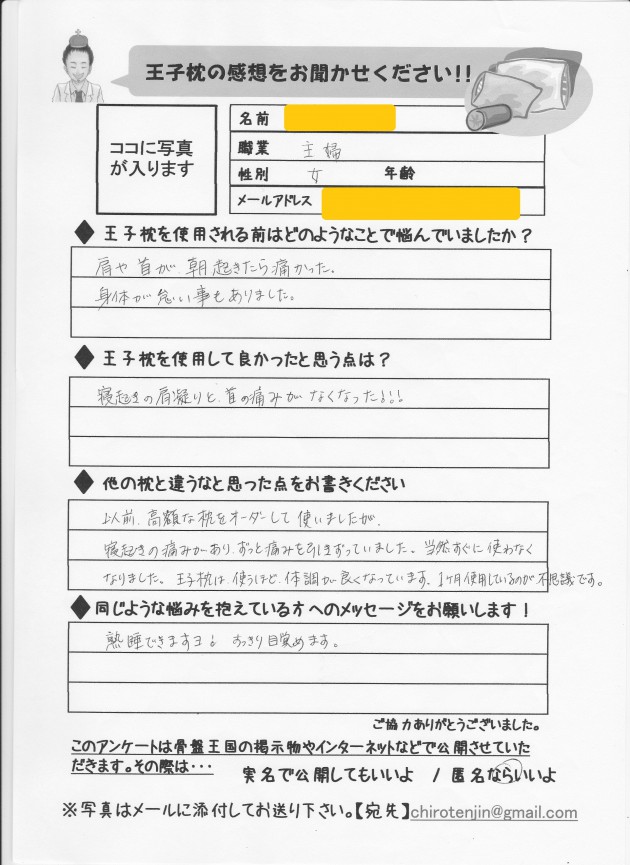 王子枕の感想をお聞かせください!!
ココに写真
が入ります
名前
職業 主婦
性別 女 年齢
メールアドレス
◆ 王子枕を使用される前はどのようなことで悩んでいましたか?
肩や首が、朝起きたら痛かった。
身体が怠い事もありました。
◆ 王子枕を使用して良かったと思う点は?
寝起きの肩凝りと、首の痛みがなくなった!!!
◆ 他の枕と違うなと思った点をお書きください
以前、高額な枕をオーダーして使いましたが、
寝起きの痛みがあり、ずっと痛みを引きずっていました。当然すぐに使わなく
なりました。王子枕は、使うほど、体調が良くなっています、1ヶ月使用しているのが不思議です。
◆ 同じような悩みを抱えている方へのメッセージをお願いします!
熟睡できますヨ! すっきり目覚めます。
ご協力ありがとうございました。
このアンケートは骨盤王国の掲示物やインターネットなどで公開させていた
だきます。その際は・・・ 実名で公開してもいいよ / 匿名ならいいよ
※写真はメールに添付してお送り下さい。【宛先】chirotenjin@gmail.com